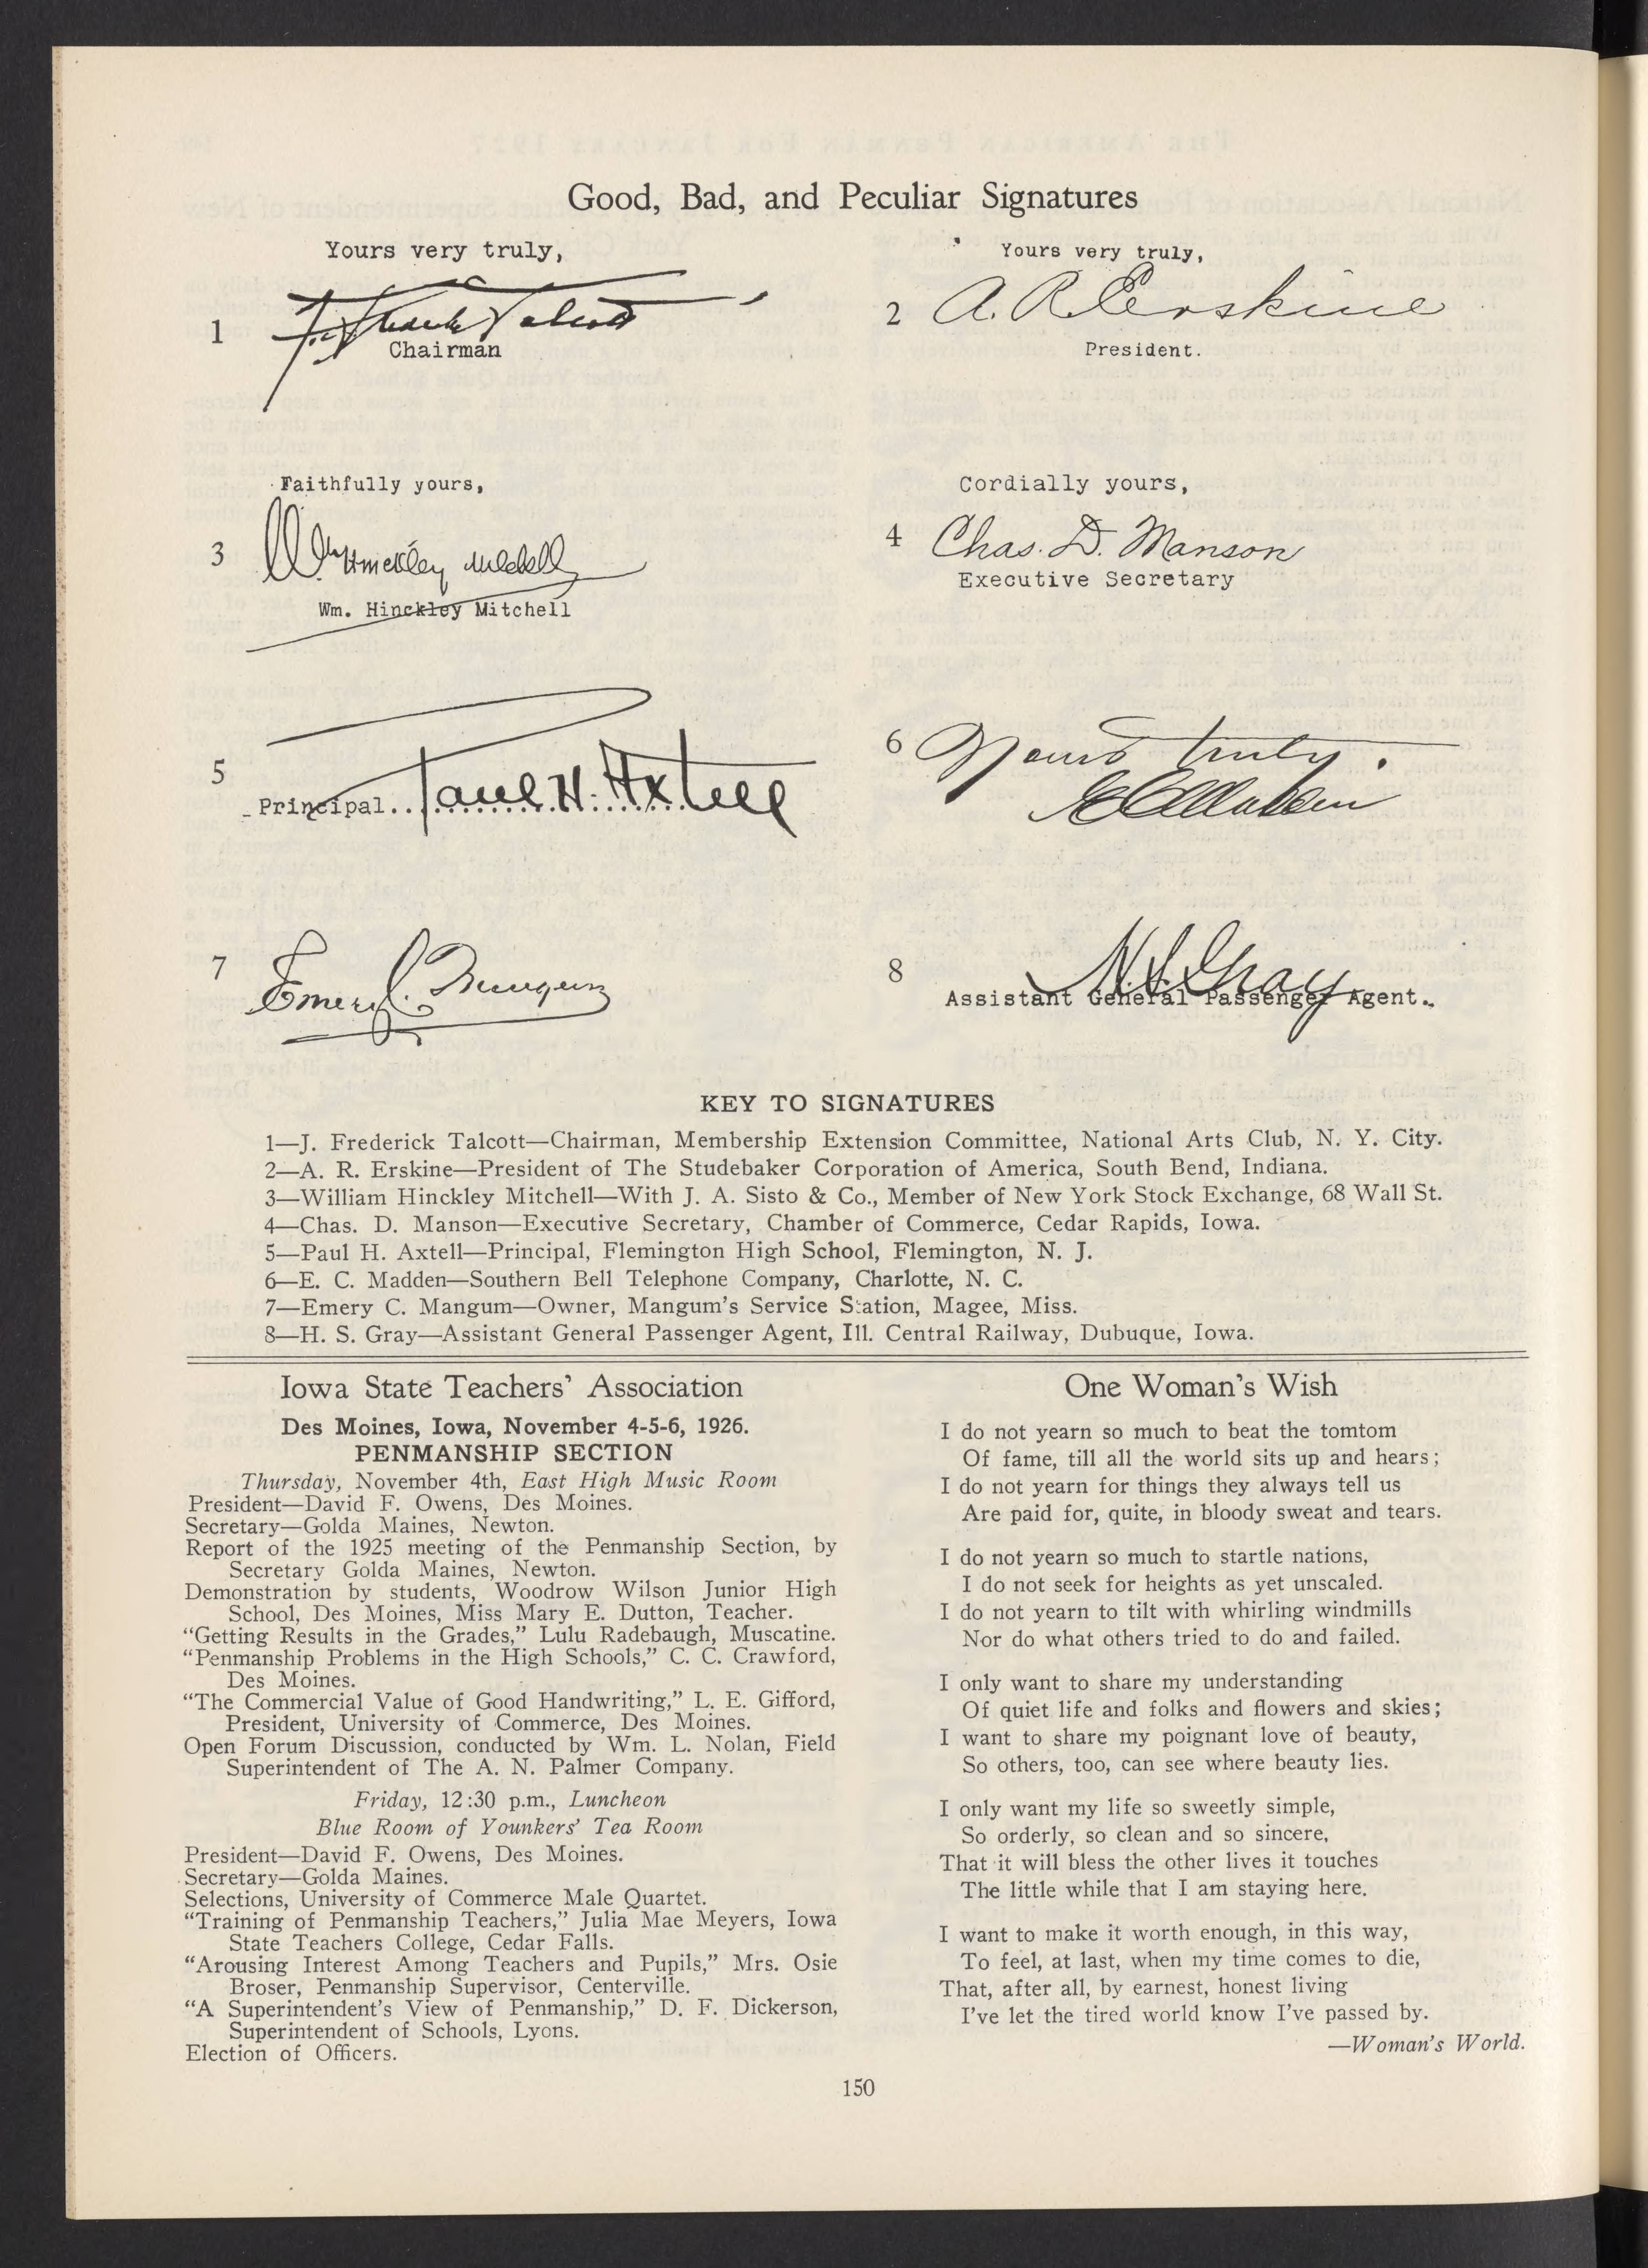 Good, Bad, and Peculiar Signatures
Yours very truly,
1
Chairman
Yours very truly,
2 A. R. Erskine
President.
Faithfully yours,
3 Wm. Hinckley Mitchell
Wm. Hinckley Mitchell
Cordially yours,
4 Chas. D. Manson
Executive Secretary
5
Principal Paul H. Axtell
6 Yours truly.
E C Madden
7 Emery C. Mangum
8 H. S. Gray
Assistant General Passenger Agent.
KEY TO SIGNATURES
1—J. Frederick Talcott—Chairman, Membership Extension Committee, National Arts Club, N. Y. City.
2—A. R. Erskine—President of The Studebaker Corporation of America, South Bend, Indiana.
3—William Hinckley Mitchell—With J. A. Sisto & Co., Member of New York Stock Exchange, 68 Wall St.
4—Chas. D. Manson—Executive Secretary, Chamber of Commerce, Cedar Rapids, Iowa.
5—Paul H. Axtell—Principal, Flemington High School, Flemington, N. J.
6—E. C. Madden—Southern Bell Telephone Company, Charlotte, N. C.
7—Emery C. Mangum—Owner, Mangum's Service Station, Magee, Miss.
8—H. S. Gray—Assistant General Passenger Agent, Ill. Central Railway, Dubuque, Iowa.
Iowa State Teachers' Association
Des Moines, Iowa, November 4-5-6, 1926.
PENMANSHIP SECTION
Thursday, November 4th, East High Music Room
President—David F. Owens, Des Moines.
Secretary—Golda Maines, Newton.
Report of the 1925 meeting of the Penmanship Section, by
Secretary Golda Maines, Newton.
Demonstration by students, Woodrow Wilson Junior High
School, Des Moines, Miss Mary E. Dutton, Teacher.
"Getting Results in the Grades," Lulu Radebaugh, Muscatine.
"Penmanship Problems in the High Schools," C. C. Crawford,
Des Moines.
"The Commercial Value of Good Handwriting," L. E. Gifford,
President, University of Commerce, Des Moines.
Open Forum Discussion, conducted by Wm. L. Nolan, Field
Superintendent of The A. N. Palmer Company.
Friday, 12:30 p.m., Luncheon
Blue Room of Younkers' Tea Room
President—David F. Owens, Des Moines.
Secretary—Golda Maines.
Selections, University of Commerce Male Quartet.
"Training of Penmanship Teachers," Julia Mae Meyers, Iowa
State Teachers College, Cedar Falls.
"Arousing Interest Among Teachers and Pupils," Mrs. Osie
Broser, Penmanship Supervisor, Centerville.
"A Superintendent's View of Penmanship," D. F. Dickerson,
Superintendent of Schools, Lyons.
Election of Officers.
One Woman's Wish
I do not yearn so much to beat the tomtom
Of fame, till all the world sits up and hears;
I do not yearn for things they always tell us
Are paid for, quite, in bloody sweat and tears.
I do not yearn so much to startle nations,
I do not seek for heights as yet unscaled.
I do not yearn to tilt with whirling windmills
Nor do what others tried to do and failed.
I only want to share my understanding
Of quiet life and folks and flowers and skies;
I want to share my poignant love of beauty,
So others, too, can see where beauty lies.
I only want my life so sweetly simple,
So orderly, so clean and so sincere,
That it will bless the other lives it touches
The little while that I am staying here.
I want to make it worth enough, in this way,
To feel, at last, when my time comes to die,
That, after all, by earnest, honest living
I've let the tired world know I've passed by.
—Woman's World.
150